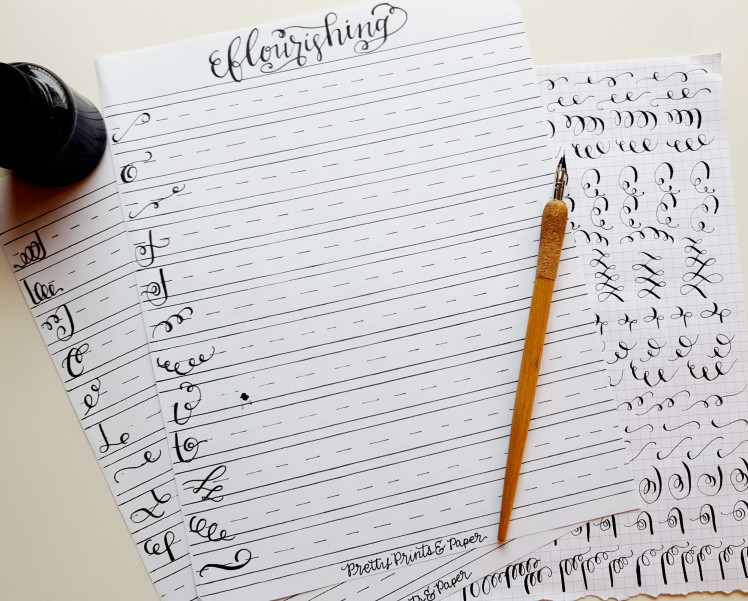 flourishing
Pretty Prints & Paper
& Paper